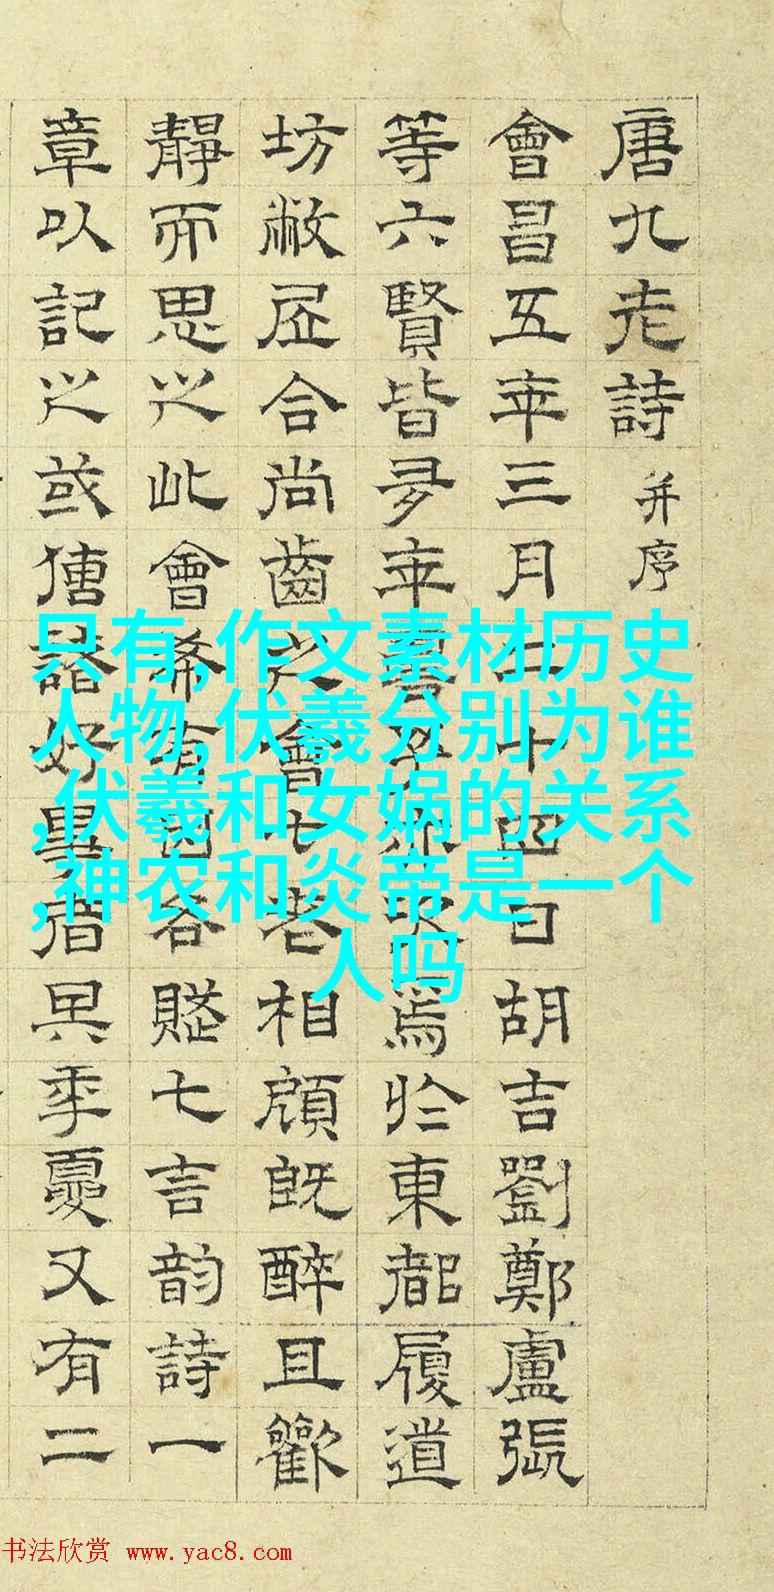 唐九老詩 并序
會昌五年三月二十四日胡吉劉鄭盧張
等六賢皆多年壽予亦次焉於東都履道
坊敝居合尚齒之會七老相顧既醉且歡
靜而思之此會希有因各賦七言韵詩一
章以記之或傳諸好事者其年夏又有二
只有,作文素材历史
人物,伏羲分别为谁
,伏羲和女娲的关系
,神农和炎帝是一个
人吗
书法欣赏 www.yac8.com